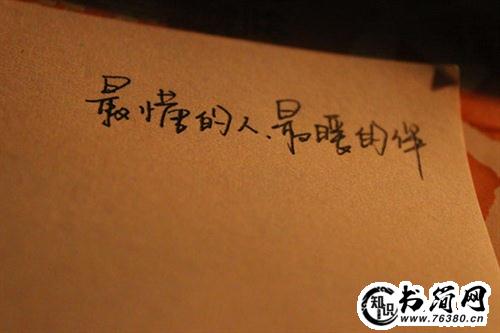 最懂的人、最暖的伴
知识 书简网
www.76380.cn